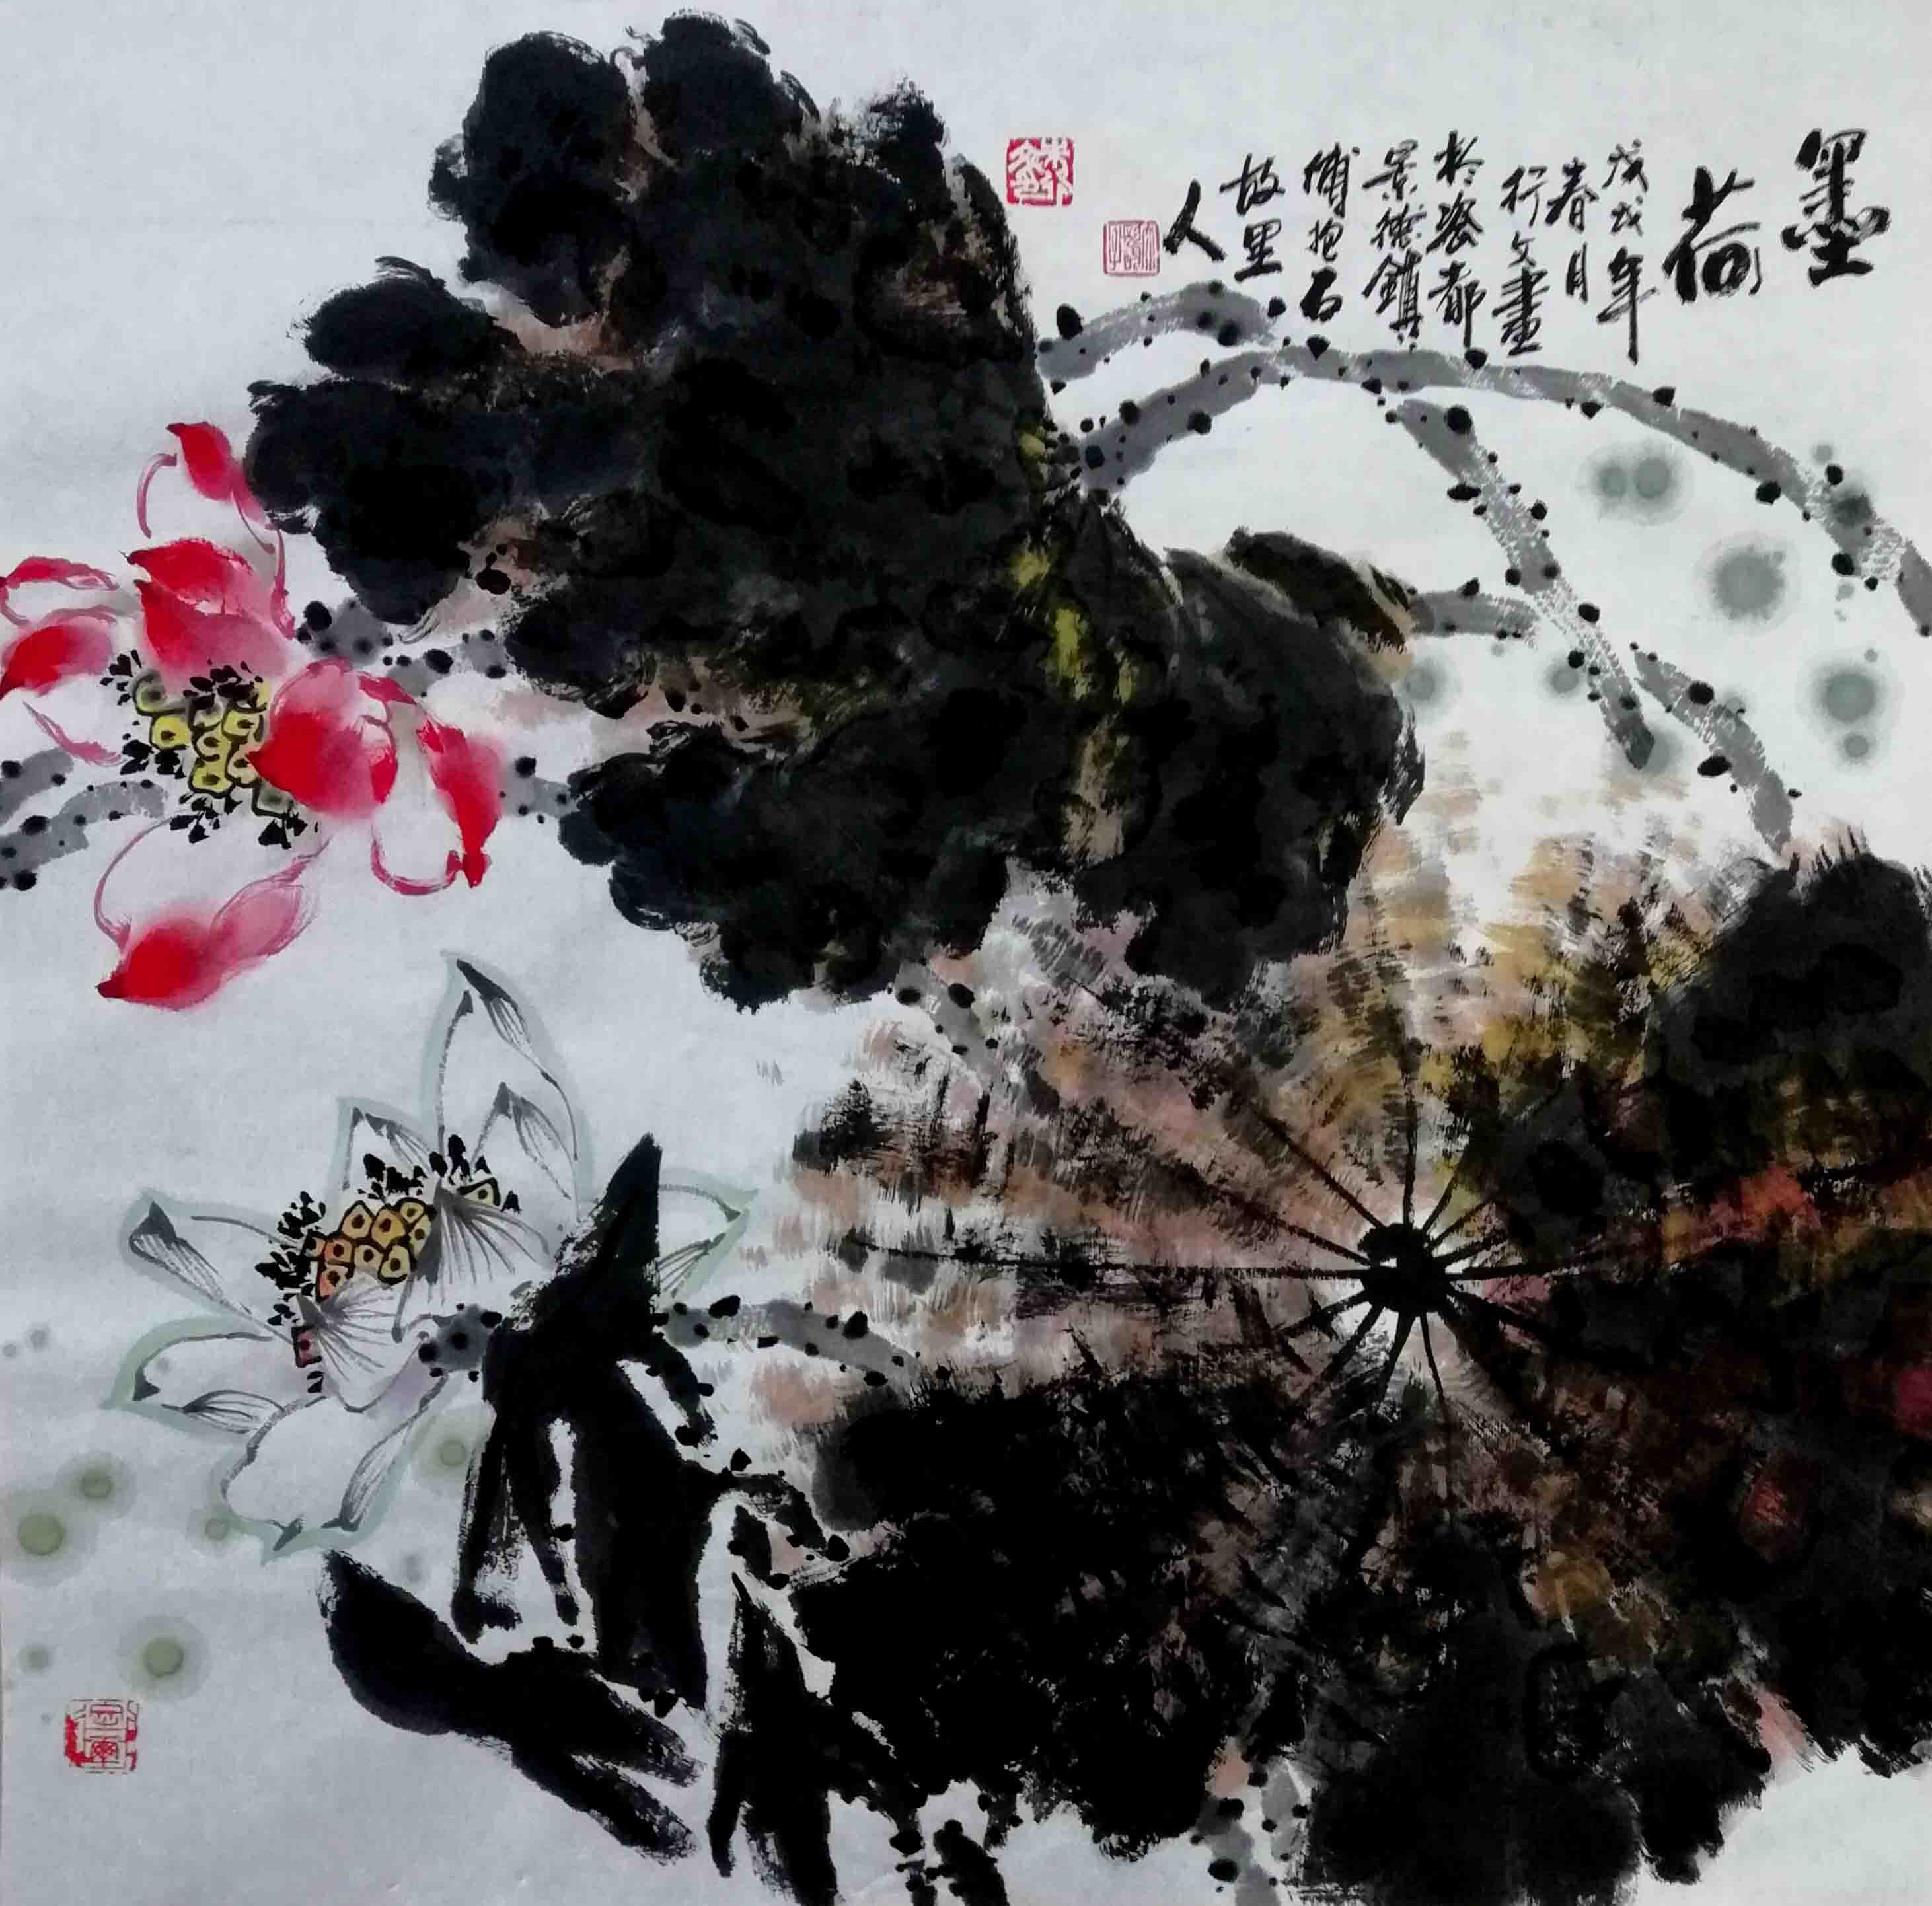 墨
荷
戊戌年
春月
行文畫
於瓷都
景德鎮
傅抱石
故里
人